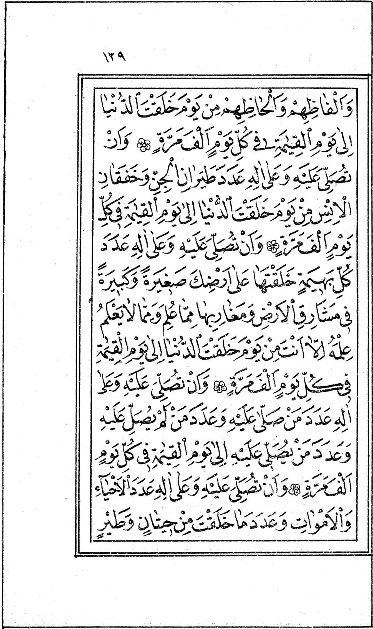 ١٣٩
وَاَلْفَاظِهِمْ وَاَلْحَاظِهِمْ مِنْ يَوْمَ خَلَقْتَ الدُّنْيَا
اِلٰى يَوْمِ الْقِيٰمَةِ فِى كُلِّ يَوْمٍ اَلْفَ مَرَّةٍ ۞ وَاَنْ
تُصَلِّىَ عَلَيْهِ وَعَلٰى اٰلِهٖ عَدَدَ طَيَرَانِ الْجِنِّ وَخَفَقَانِ
الْاِنْسِ مِنْ يَوْمِ خَلَقْتَ الدُّنْيَا اِلٰى يَوْمِ الْقِيٰمَةِ فِى كُلِّ
يَوْمٍ اَلْفَ مَرَّةٍ ۞ وَاَنْ تُصَلِّىَ عَلَيْهِ وَعَلٰى اٰلِهٖ عَدَدَ
كُلِّ بَهِيمَةٍ خَلَقْتَهَا عَلٰى اَرْضِكَ صَغِيرَةً وَكَبِيرَةً
فِى مَشَارِقِ الْاَرْضِ وَمَغَارِبِهَا مِمَّا عُلِمَ وَمِمَّا لَا يَعْلَمُ
عِلْمَهُ اِلَّا اَنْتَ مِنْ يَوْمِ خَلَقْتَ الدُّنْيَا اِلٰى يَوْمِ الْقِيٰمَةِ
فِى كُلِّ يَوْمٍ اَلْفَ مَرَّةٍ ۞ وَاَنْ تُصَلِّىَ عَلَيْهِ وَعَلٰى
اٰلِهٖ عَدَدَ مَنْ صَلّٰى عَلَيْهِ وَعَدَدَ مَنْ لَمْ يُصَلِّ عَلَيْهِ
وَعَدَدَ مَنْ يُصَلِّى عَلَيْهِ اِلٰى يَوْمِ الْقِيٰمَةِ فِى كُلِّ يَوْمٍ
اَلْفَ مَرَّةٍ ۞ وَاَنْ تُصَلِّىَ عَلَيْهِ وَعَلٰى اٰلِهٖ عَدَدَ الْاَحْيَاءِ
وَالْاَمْوَاتِ وَعَدَدَ مَا خَلَقْتَ مِنْ حِيتَانٍ وَطَيْرٍ